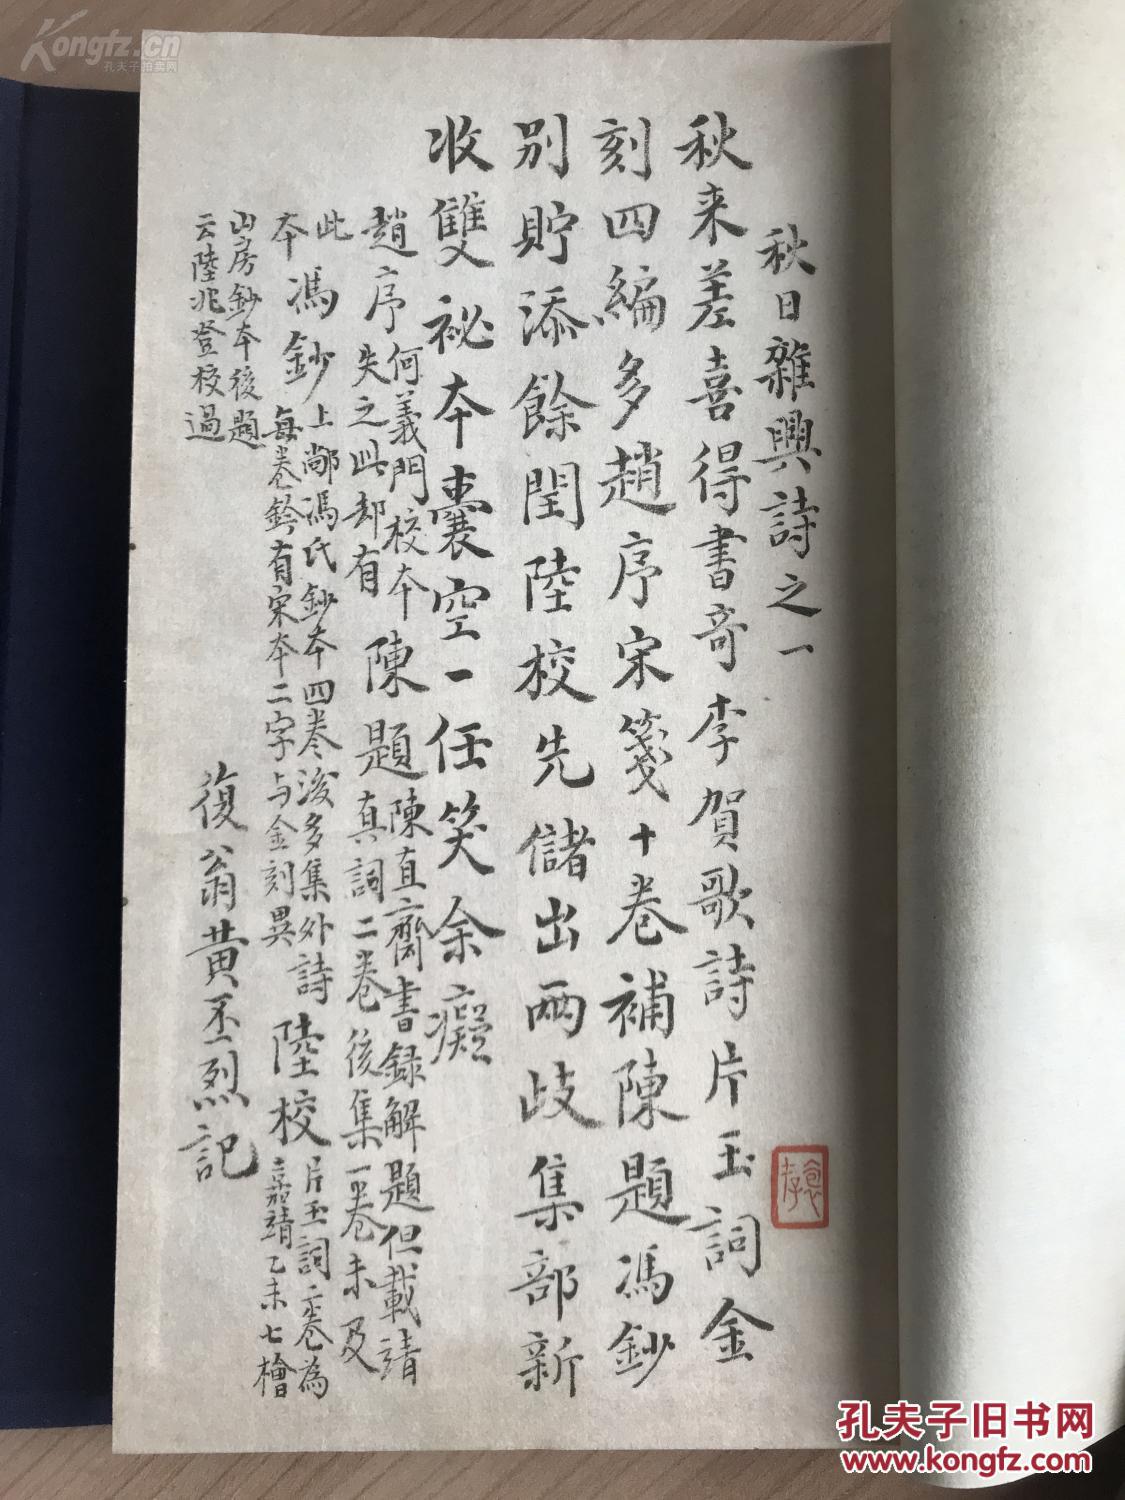 秋日雜興詩之一
秋来差喜得書奇李賀歌詩片玉詞金
刻四編多趙序宋箋十卷補陳題馮鈔
別貯添餘閏陸校先儲出兩歧集部新
收雙祕本囊空一任笑余癡
趙序
何義門校本
失之此却有
陳題
陳直齋書録解題但載清
真詞二卷後集一卷未及
此
本
馮鈔
上鄰馮氏鈔本四卷後多集外詩
每卷鈐有宋本二字与金刻異
陸校
片玉詞二卷為
嘉靖乙未七檜
山房鈔本後題
云陸兆登校過
復翁黄丕烈記
Kongfz.cn
孔夫子拍卖网
孔夫子旧书网
www.kongfz.com